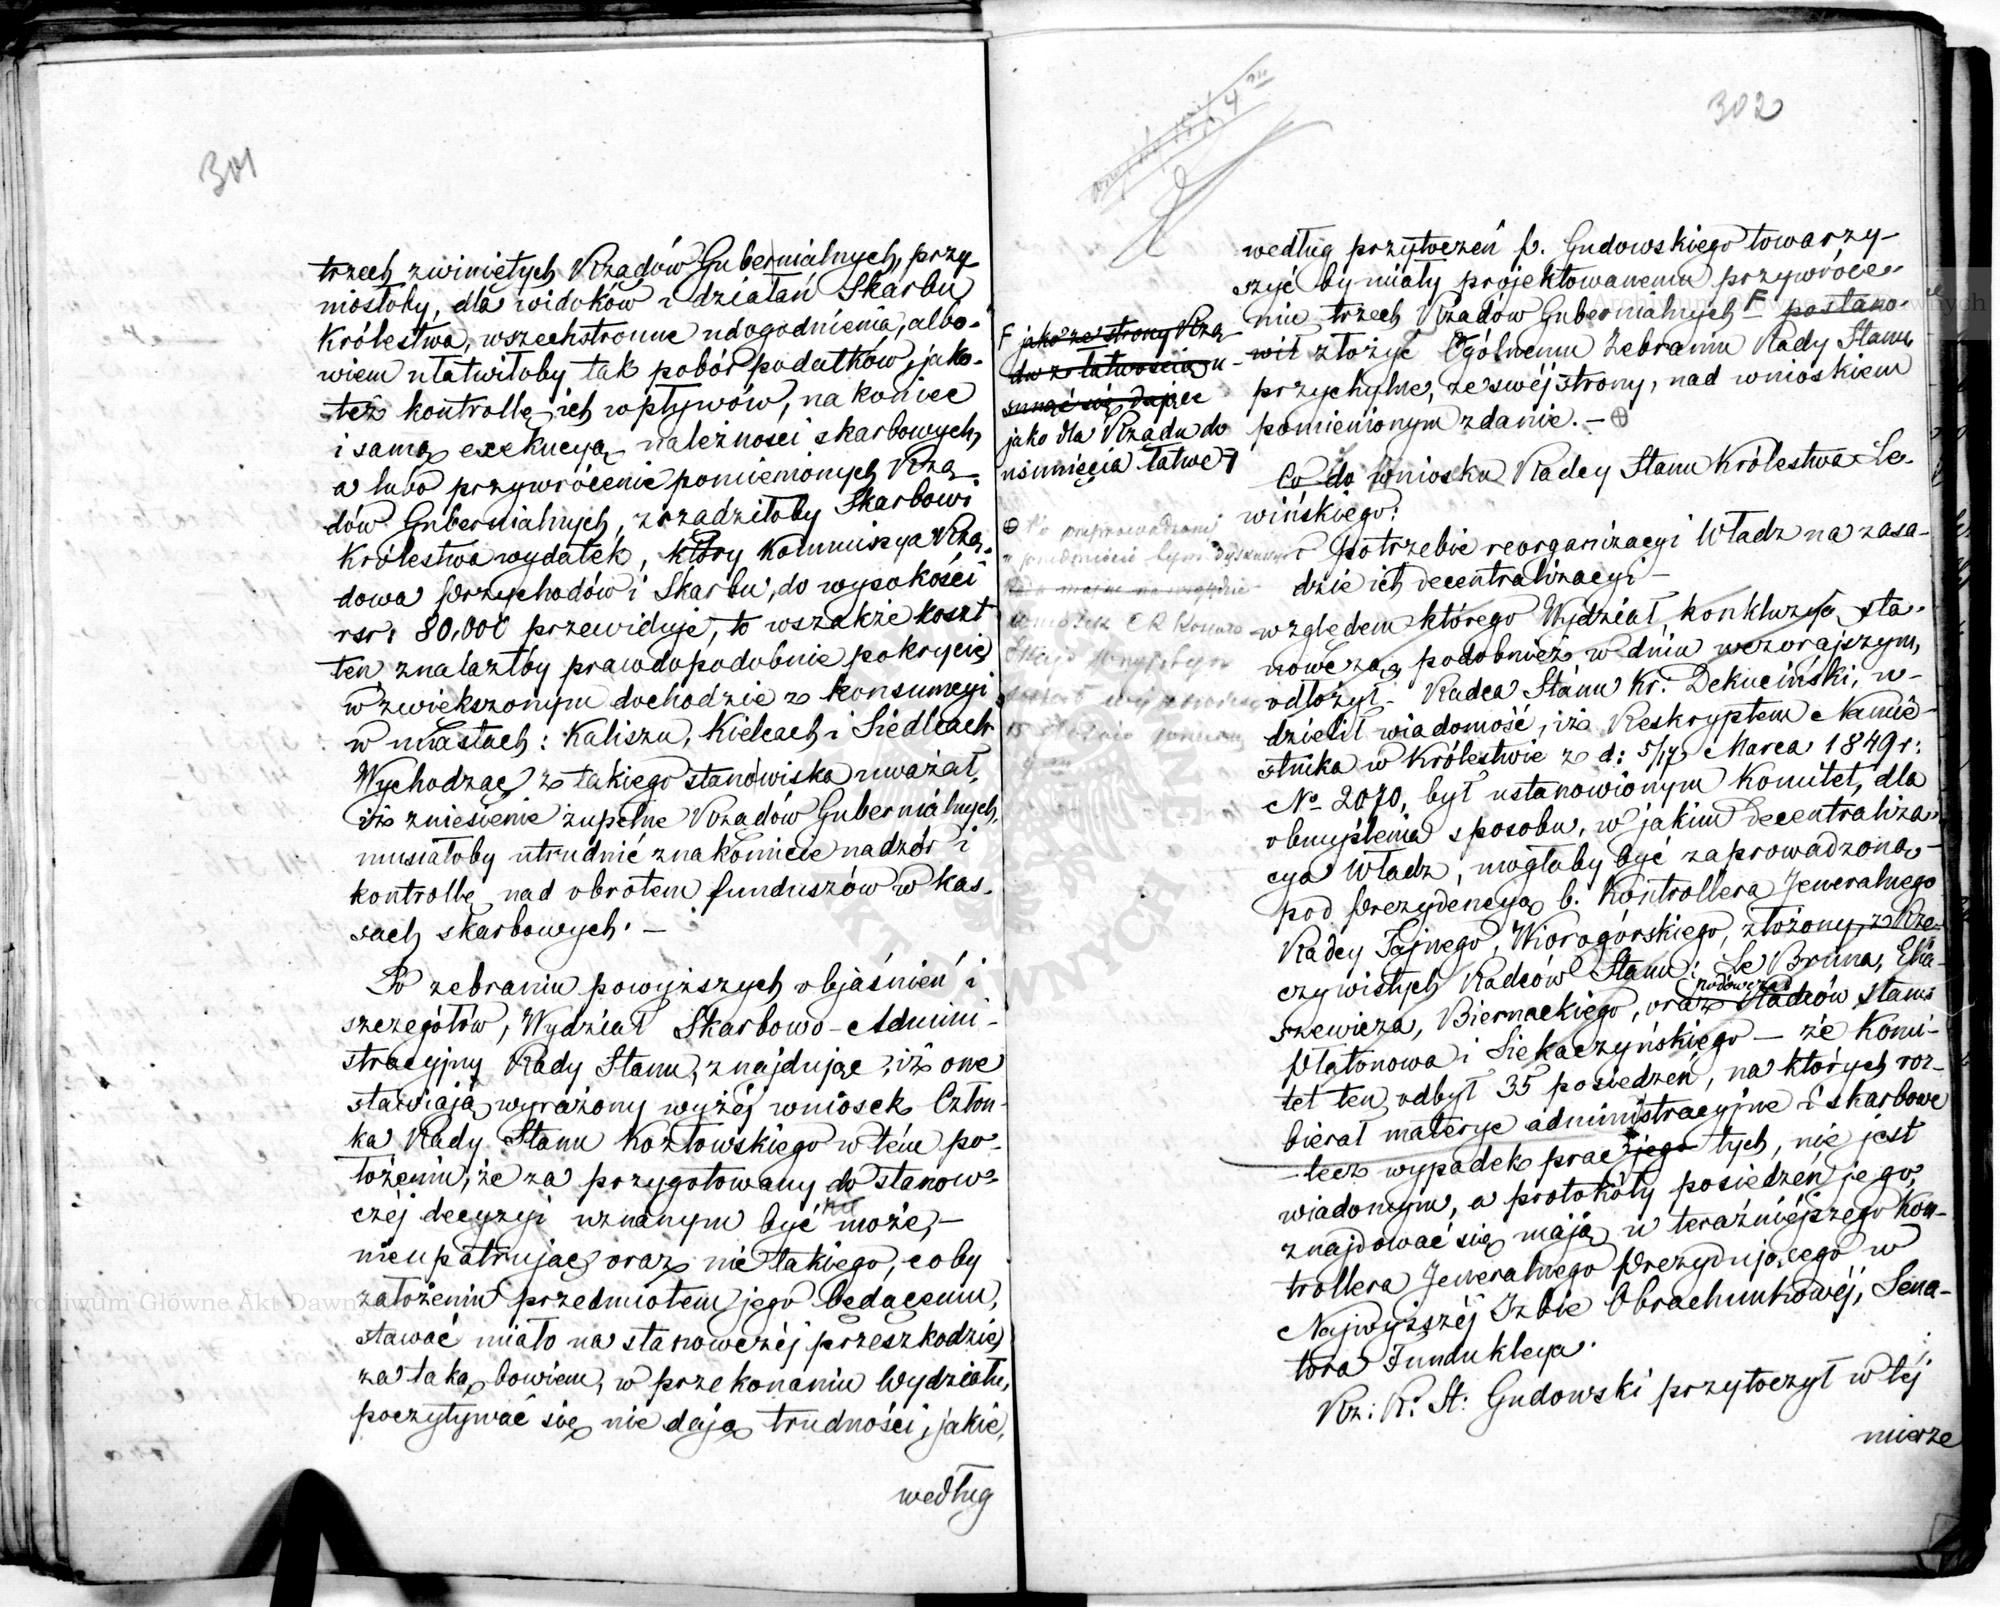 301
trzech zwiniętych Rządów Gubernialnych, przy
niosłoby, dla widoków i działań Skarbu
Królestwa, wszechstronne udogodnienia, albo-
wiem ułatwiłoby tak pobór podatków, jako-
też kontrollę ich wpływów, na koniec
i samą exekucyą należności skarbowych,
a lubo przywrócenie pomienionych Rzą-
dów Gubernialnych, zrządziłoby Skarbowi
Królestwa wydatek, który Kommissya Rzą-
dowa Przychodów i Skarbu, do wysokości
rsr: 80,000 przewiduje, to wszakże koszt
ten, znalazłby prawdopodobnie pokrycie
w zwiększonym dochodzie z konsumcyi
w miastach: Kaliszu, Kielcach i Siedlcach
Wychodząc z takiego stanowiska uważał,
iż zniesienie zupełne Rządów Gubernialnych,
musiałoby utrudnić znakomicie nadzór i
kontrollę nad obrotem funduszów w kas-
sach skarbowych. —
Po zebraniu powyższych objaśnień i
szczegółów, Wydział Skarbowo-Admini-
stracyjny Rady Stanu, znajdując, iż one
stawiają wyrażony wyżej wniosek Człon-
ka Rady Stanu Kozłowskiego w tém po-
łożeniu, że za przygotowany do stanow-
czéj decyzyi uznanym być może, —
nieupatrując oraz nic takiego, coby
założeniu przedmiotem jego będącemu,
stawać miało na stanowczéj przeszkodzie
za taką bowiem, w przekonaniu Wydziału,
poczytywać się nie dają trudności, jakie,
według
302
według przytoczeń p. Gudowskiego towarzy-
szyć by miały projektowanemu przywróce-
niu trzech Rządów Gubernialnych F postano-
wił złożyć Ogólnemu Zebraniu Rady Stanu
przychylne, ze swéj strony, nad wnioskiem
pomienionym zdanie. — ⊕
F jako ze strony Rzą-
du z łatwością u-
sunąć się dające
jako dla Rządu do
usunięcia łatwe
Co do wniosku Radcy Stanu Królestwa Le-
wińskiego:
o potrzebie reorganizacyi Władz na zasa-
dzie ich decentralizacyi —
względem którego Wydział konkluzyą sta-
nowczą, podobnież w dniu wczorajszym,
odłożył. Radca Stanu Kr. Dekuciński, u-
dzielił wiadomość, iż Reskryptem Namie-
stnika w Królestwie z d: 5/17 Marca 1849 r:
No 2070, był ustanowionym Komitet, dla
obmyślenia sposobu, w jakim decentraliza-
cya Władz, mogłaby być zaprowadzona,
pod Prezydencyą b. Kontrollera Jeneralnego
Radcy Tajnego, Wiorogórskiego, złożony z Rze-
czywistych Radców Stanu: Le Bruna, Elia-
szewicza, Biernackiego, oraz Radców Stanu
Płatonowa i Siekaczyńskiego — że Komi-
tet ten, odbył 35 posiedzeń, na których roz-
bierał materye administracyjne i skarbowe
lecz wypadek prac jego tych, nie jest
wiadomym, a protokóły posiedzeń jego,
znajdować się mają u teraźniejszego Kon-
trollera Jeneralnego Prezydującego w
Najwyższéj Izbie Obrachunkowéj, Sena-
tora Fundukleya.
Rz: R: St: Gudowski przytoczył w téj
mierze